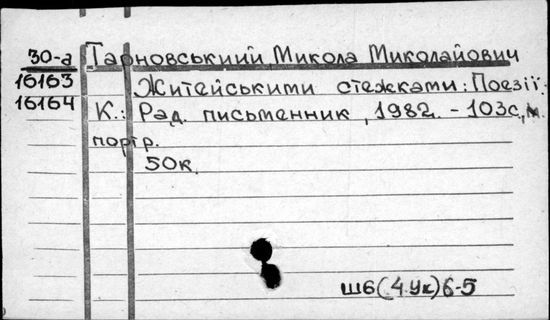 30-а Тарновський Микола Миколайович
16163 Житейськими стежками: Поезії.-
16164 К.: Рад. письменник, 1982. - 103с.,
портр.
50к.
Ш6(4Ук)6-5